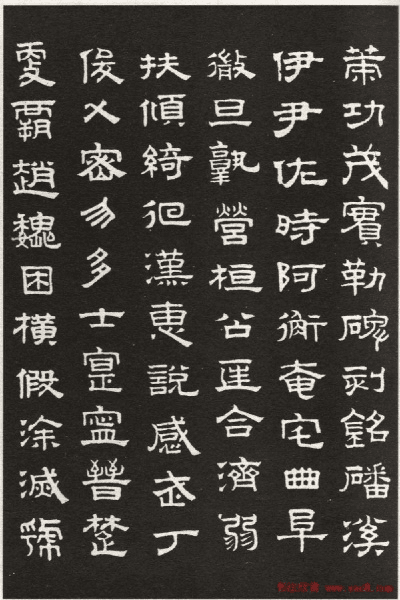 策功茂實勒碑刻銘磻溪
伊尹佐時阿衡奄宅曲阜
微旦孰營桓公匡合濟弱
扶傾綺迴漢惠說感武丁
俊乂密勿多士寔寧晉楚
更霸趙魏困橫假涂滅虢